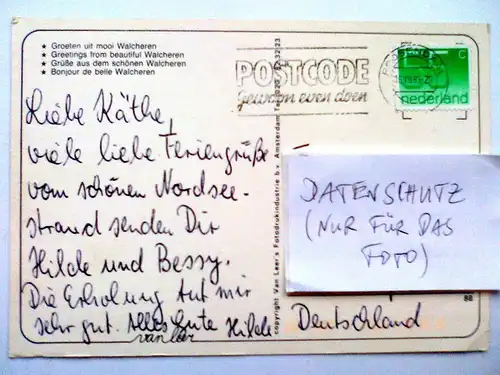 ★ Groeten uit mooi Walcheren
★ Greetings from beautiful Walcheren
★ Grüße aus dem schönen Walcheren
★ Bonjour de belle Walcheren
POSTCODE
gewoon even doen
C
nederland
Liebe Käthe,
viele liebe Feriengrüße
vom schönen Nordsee-
strand senden Dir
Hilde und Bessy.
Die Erholung tut mir
sehr gut. Alles Gute Hilde
van leer
copyright Van Leer's Fotodrukindustrie b.v. Amsterdam
DATENSCHUTZ
(NUR FÜR DAS
FOTO)
Deutschland
88